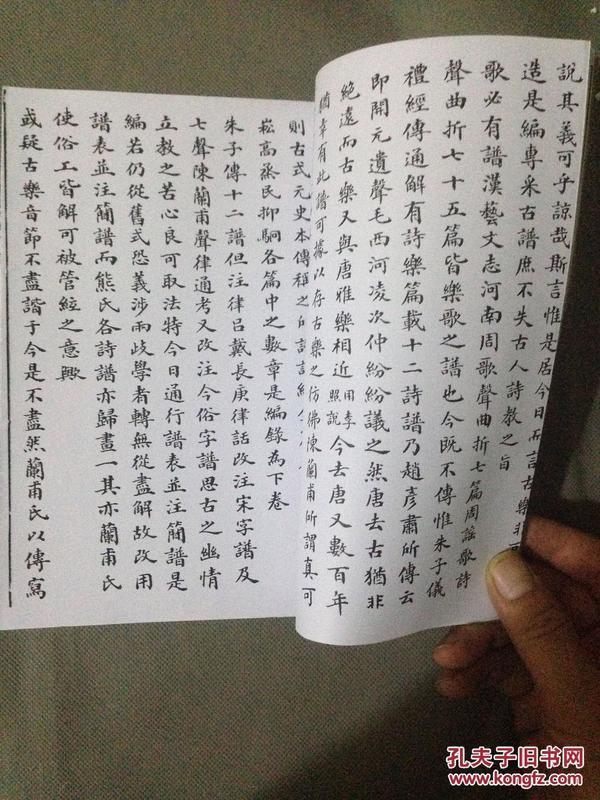 說其義可乎諒哉斯言惟是居今日而言古樂非
造是編專采古譜庶不失古人詩教之旨
歌必有譜漢藝文志河南周歌聲曲折七篇周謠歌詩
聲曲折七十五篇皆樂歌之譜也今既不傳惟朱子儀
禮經傳通解有詩樂篇載十二詩譜乃趙彥肅所傳云
即開元遺聲毛西河凌次仲紛紛議之然唐去古猶非
絕遠而古樂又與唐雅樂相近用李照說今去唐又數百年
猶幸有此譜可據以存古樂之仿佛陳蘭甫所謂真可
則古式元史本傳稱之
崧高烝民抑駉各篇中之數章是編錄為下卷
朱子傳十二譜但注律呂戴長庚律話改注宋字譜及
七聲陳蘭甫聲律通考又改注今俗字譜思古之幽情
立教之苦心良可取法特今日通行譜表並注簡譜是
編若仍從舊式恐義涉兩歧學者轉無從盡解故改用
譜表並注簡譜而熊氏各詩譜亦歸畫一其亦蘭甫氏
使俗工皆解可被管絃之意歟
或疑古樂音節不盡諧于今是不盡然蘭甫氏以傳寫
孔夫子旧书网
www.kongfz.com